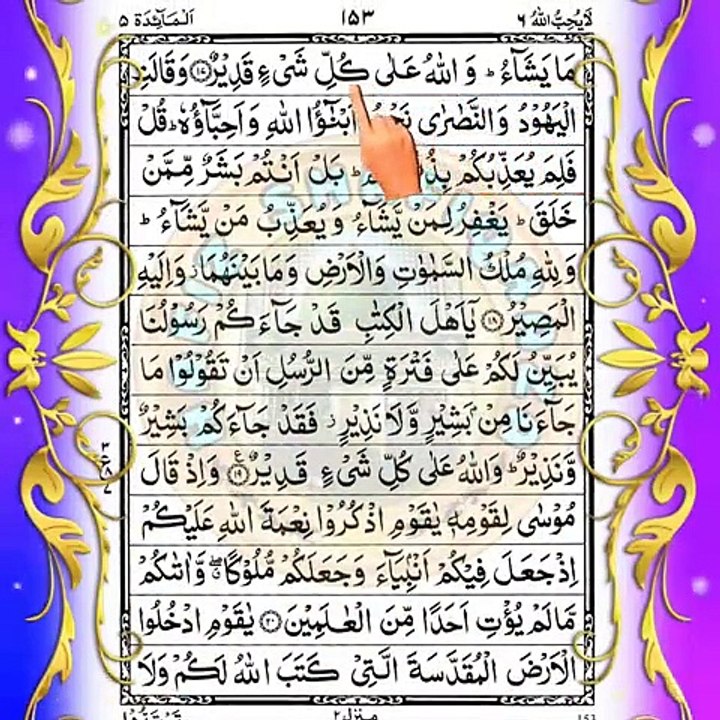 لَایُحِبُّ اللّٰهُ ٦ ١٥٣ اَلْمَآئِدَة ٥
مَا یَشَآءُ ؕ وَ اللّٰهُ عَلٰی كُلِّ شَیْءٍ قَدِیْرٌ ﴿۱۷﴾ وَ قَالَتِ
الْیَهُوْدُ وَ النَّصٰرٰی نَحْنُ اَبْنٰٓؤُا اللّٰهِ وَ اَحِبَّآؤُهٗ ؕ قُلْ
فَلِمَ یُعَذِّبُكُمْ ؕ بَلْ اَنْتُمْ بَشَرٌ مِّمَّنْ
خَلَقَ ؕ یَغْفِرُ لِمَنْ یَّشَآءُ وَ یُعَذِّبُ مَنْ یَّشَآءُ ؕ
وَ لِلّٰهِ مُلْكُ السَّمٰوٰتِ وَ الْاَرْضِ وَ مَا بَیْنَهُمَا ؗ وَ اِلَیْهِ
الْمَصِیْرُ ﴿۱۸﴾ یٰۤاَهْلَ الْكِتٰبِ قَدْ جَآءَكُمْ رَسُوْلُنَا
یُبَیِّنُ لَكُمْ عَلٰی فَتْرَةٍ مِّنَ الرُّسُلِ اَنْ تَقُوْلُوْا مَا
جَآءَنَا مِنْۢ بَشِیْرٍ وَّ لَا نَذِیْرٍ ؗ فَقَدْ جَآءَكُمْ بَشِیْرٌ
وَّ نَذِیْرٌ ؕ وَ اللّٰهُ عَلٰی كُلِّ شَیْءٍ قَدِیْرٌ ﴿۱۹﴾ وَ اِذْ قَالَ
مُوْسٰی لِقَوْمِهٖ یٰقَوْمِ اذْكُرُوْا نِعْمَةَ اللّٰهِ عَلَیْكُمْ
اِذْ جَعَلَ فِیْكُمْ اَنْۢبِیَآءَ وَ جَعَلَكُمْ مُّلُوْكًا ۖۗ وَّ اٰتٰىكُمْ
مَّا لَمْ یُؤْتِ اَحَدًا مِّنَ الْعٰلَمِیْنَ ﴿۲۰﴾ یٰقَوْمِ ادْخُلُوا
الْاَرْضَ الْمُقَدَّسَةَ الَّتِیْ كَتَبَ اللّٰهُ لَكُمْ وَ لَا
منزل ٢